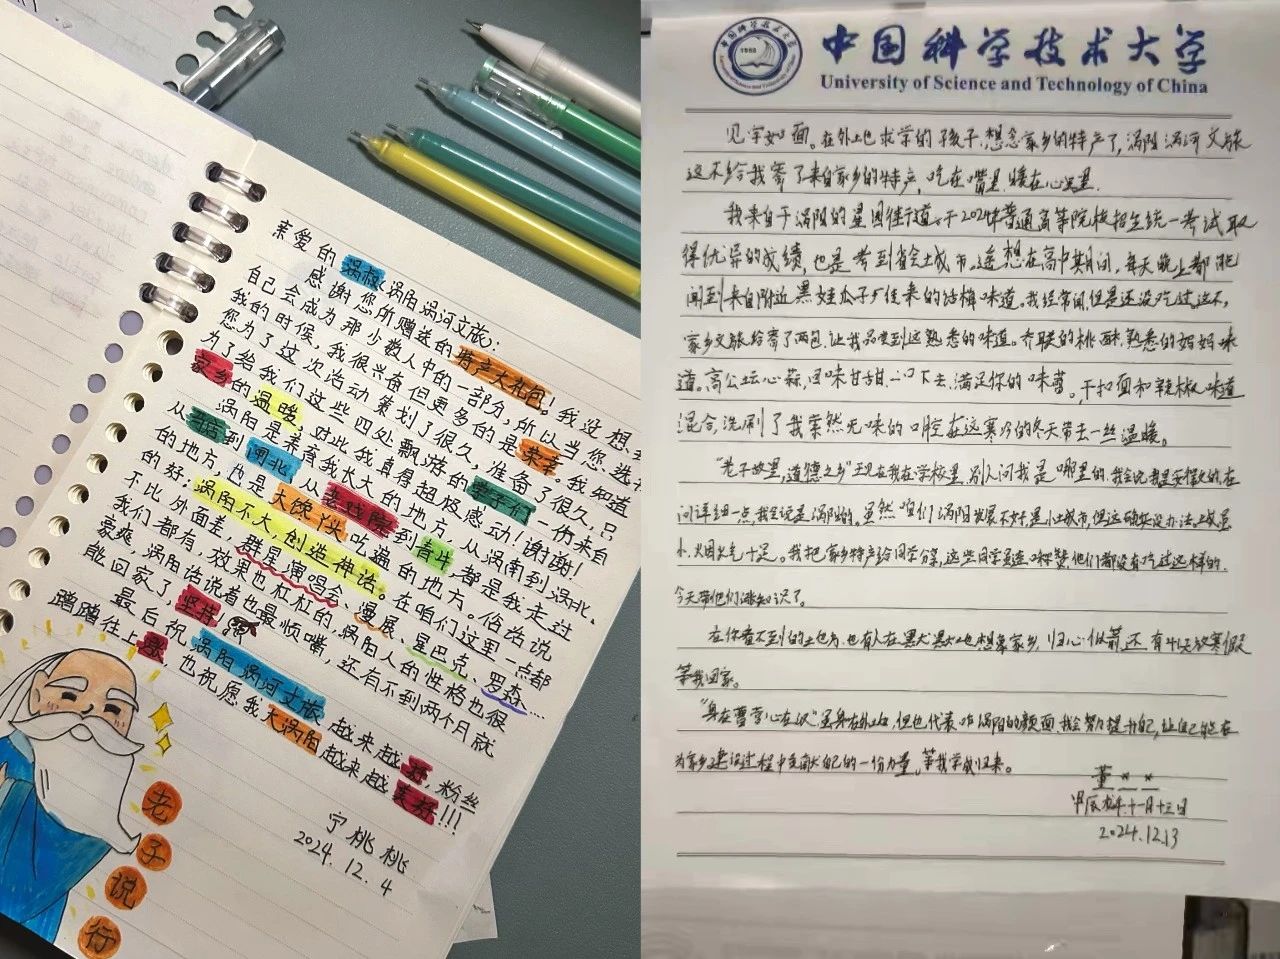 亲爱的涡叔(涡阳涡河文旅):
感谢您所赠送的特产大礼包!我没想
自己会成为那少数人中的一部分,所以当您选
我的时候,我很兴奋但更多的是荣幸。我知道
您为了这次活动策划了很久,准备了很久,只
为了给我们这些四处飘游的学子们一份来自
家乡的温暖,对此我真得超级感动!谢谢!
涡阳是养育我长大的地方,从涡南到涡北,
从到闸北,从老戏院到育斗,都是我走过
的地方,也是大馍丫头吃遍的地方。俗话说
的好:涡阳不大,创造神话。在咱们这里一点都
不比外面差,群星演唱会、漫展、星巴克、罗森……
我们都有,效果也杠杠的,涡阳人的性格也很
豪爽,涡阳话说着也最顺嘴,还有不到两个月就
能回家了,坚持!
最后祝涡阳涡河文旅越来越好,粉丝
蹭蹭往上涨,也祝愿我大涡阳越来越美好!!!
宁桃桃
2024.12.4
老
子
说
行
中国科学技术大学
University of Science and Technology of China
见字如面。在外地求学的孩子,想念家乡的特产了,涡阳涡河文旅
这不给我寄了来自家乡的特产,吃在嘴里,暖在心里。
我来自于涡阳的星园街道。于2024年普通高等院校招生统一考试取
得优异的成绩,也是考到省会城市。遥想在高中期间,每天晚上都能
闻到来自附近黑娃瓜子厂传来的话梅味道。我经常闻但是还没吃过,这不,
家乡文旅给寄了两包,让我品尝到这熟悉的味道。乔联的桃酥,熟悉的妈妈味
道。高公坛心蒜,回味甘甜,一口下去,满足你的味蕾。干扣面和辣椒味道
混合,洗刷了我索然无味的口腔在这寒冷的冬天带去一丝温暖。
"老子故里,道德之乡"现在我在学校里,别人问我是哪里的,我会说我是安徽的,在
问详细一点,我会说是涡阳的。虽然咱们涡阳发展不好,是小城市,但这确实没办法,城虽
小,烟火气十足。我把家乡特产给同学分享,这些同学连连称赞,他们都没有吃过这样的,
今天带他们涨知识了。
在你看不到的地方,也有人在默默地想家乡,归心似箭,还有41天放寒假
等我回家。
"身在曹营心在汉"虽身在外地,但也代表咱涡阳的颜面,我会努力提升自己,让自己能在
为家乡建设过程中贡献自己的一份力量,等我学成归来。
董**
甲辰年十一月十三日
2024.12.13